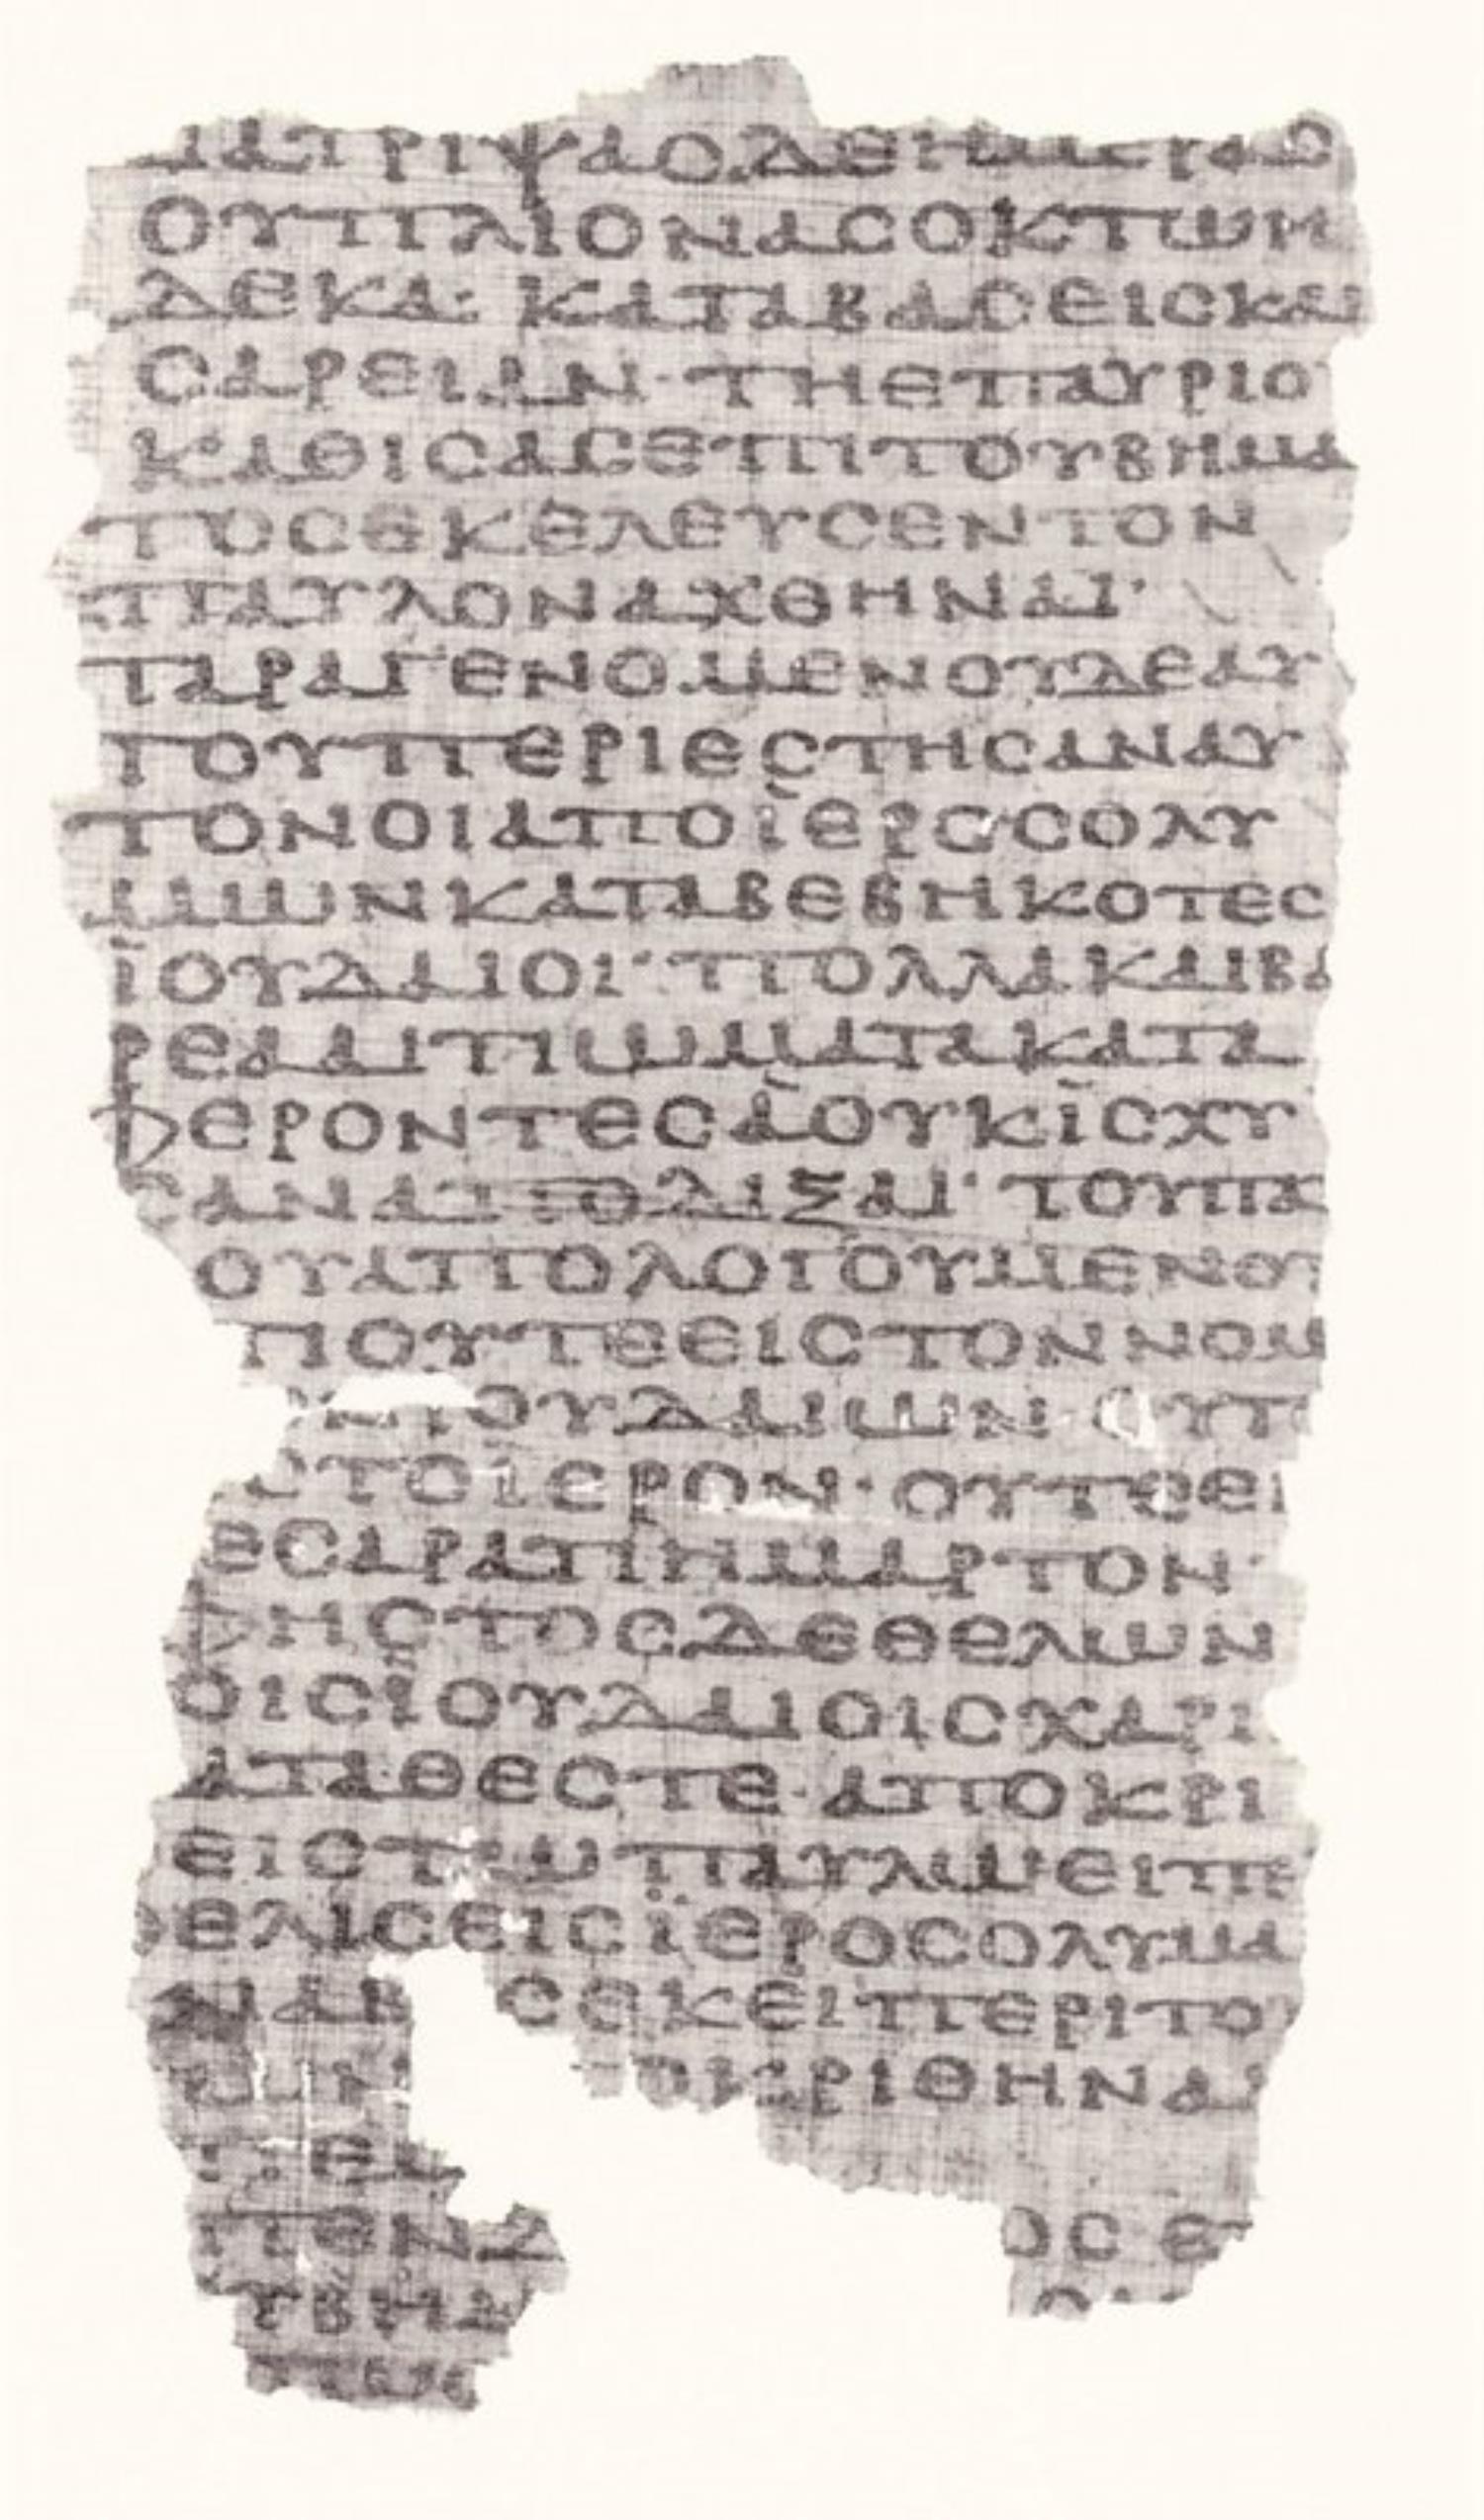 ΔΙΑΤΡΙΨΑCΔΕΗΜΕΡΑC
ΟΥΠΛΙΟΝΑCΟΚΤΩΗ
ΔΕΚΑ· ΚΑΤΑΒΑCΕΙCΚΑΙ
CΑΡΕΙΑΝ· ΤΗΕΠΑΥΡΙΟ
ΚΑΘΙCΑCΕΠΙΤΟΥΒΗΜΑ
ΤΟCΕΚΕΛΕΥCΕΝΤΟΝ
ΠΑΥΛΟΝΑΧΘΗΝΑΙ·
ΠΑΡΑΓΕΝΟΜΕΝΟΥΔΕΑΥ
ΤΟΥΠΕΡΙΕCΤΗCΑΝΑΥ
ΤΟΝΟΙΑΠΟΪΕΡΟCΟΛΥ
ΜΩΝΚΑΤΑΒΕΒΗΚΟΤΕC
ΪΟΥΔΑΙΟΙ· ΠΟΛΛΑΚΑΙΒΑ
ΡΕΑΑΙΤΙΩΜΑΤΑΚΑΤΑ
ΦΕΡΟΝΤΕCΑΟΥΚΪCΧΥ
CΑΝΑΠΟΔΙΞΑΙ· ΤΟΥΠΑ
ΟΥΑΠΟΛΟΓΟΥΜΕΝΟΥ
ΤΙΟΥΤΕΕΙCΤΟΝΝΟΜ
ΝΙΟΥΔΑΙΩΝ ΟΥΤ
CΤΟΪΕΡΟΝ· ΟΥΤΕΕΙ
ΕCΑΡΑΤΙΗΜΑΡΤΟΝ·
ΦΗCΤΟCΔΕΘΕΛΩΝ
ΟΙCΪΟΥΔΑΙΟΙCΧΑΡΙ
ΑΤΑΘΕCΤΕ· ΑΠΟΚΡΙ
ΕΙCΤΩΠΑΥΛΩΕΙΠΕ
ΘΕΛΙCΕΙCΪΕΡΟCΟΛΥΜΑ
ΝΑΒ CΕΚΕΙΠΕΡΙΤΟΥ
ΤΩΝ ΚΡΙΘΗΝΑΙ
ΠΕΜ
ΠΕΝΔ ΟC ΕΠ
ΥΒΗΜ